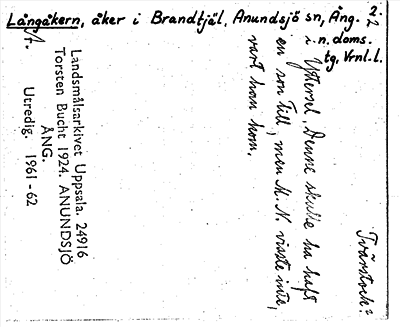 Långåkern, åker i Brandtjäl, Anundsjö sn, Ång. 2.
2
n. doms.
tg, Vrnl. l.
Tvärstock?
i Yttersel. Denne skulle ha haft
en son till, men M. N. visste inte,
vart han kom.
Landsmålsarkivet Uppsala. 24916
Torsten Bucht 1924. ANUNDSJÖ
ÅNG.
Utredig. 1961-62
A.